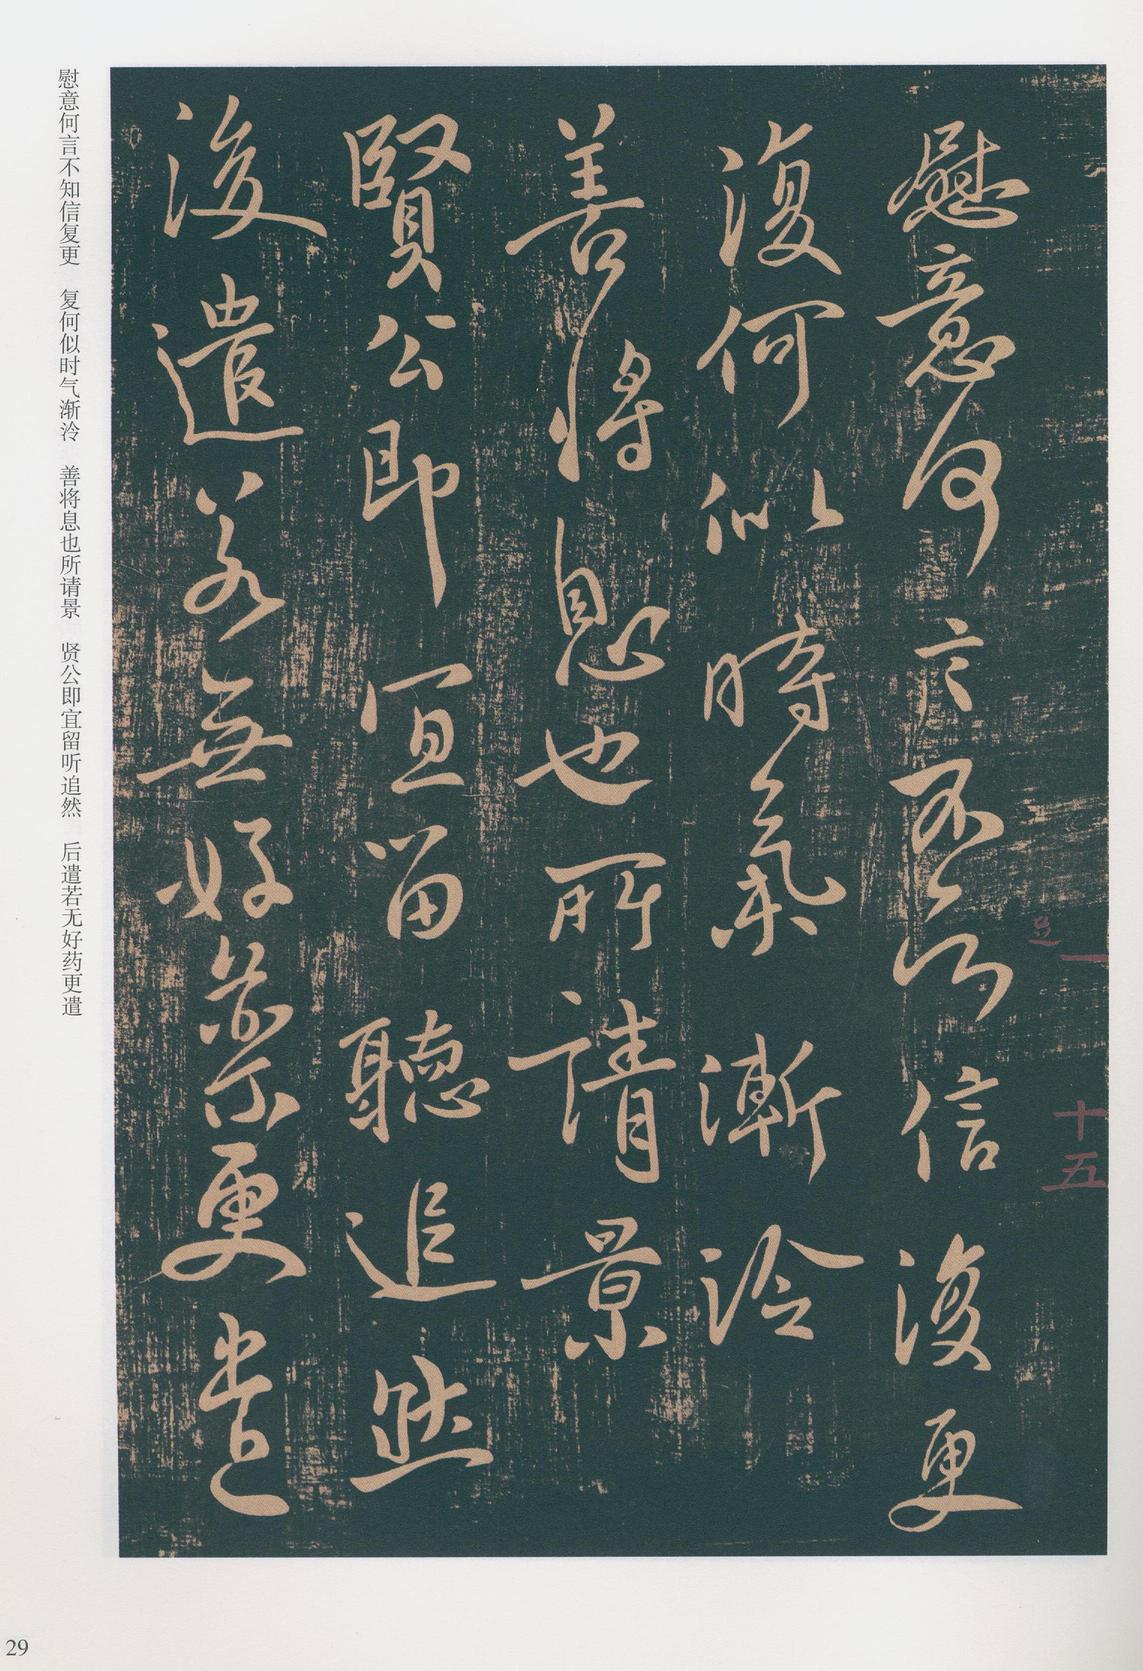 慰意何言不知信復更
復何似時氣漸泠
善將息也所請景
賢公即宜留聽追然
後遣若無好藥更遣
一
十五
慰意何言不知信复更　复何似时气渐泠　善将息也所请景　贤公即宜留听追然　后遣若无好药更遣
29